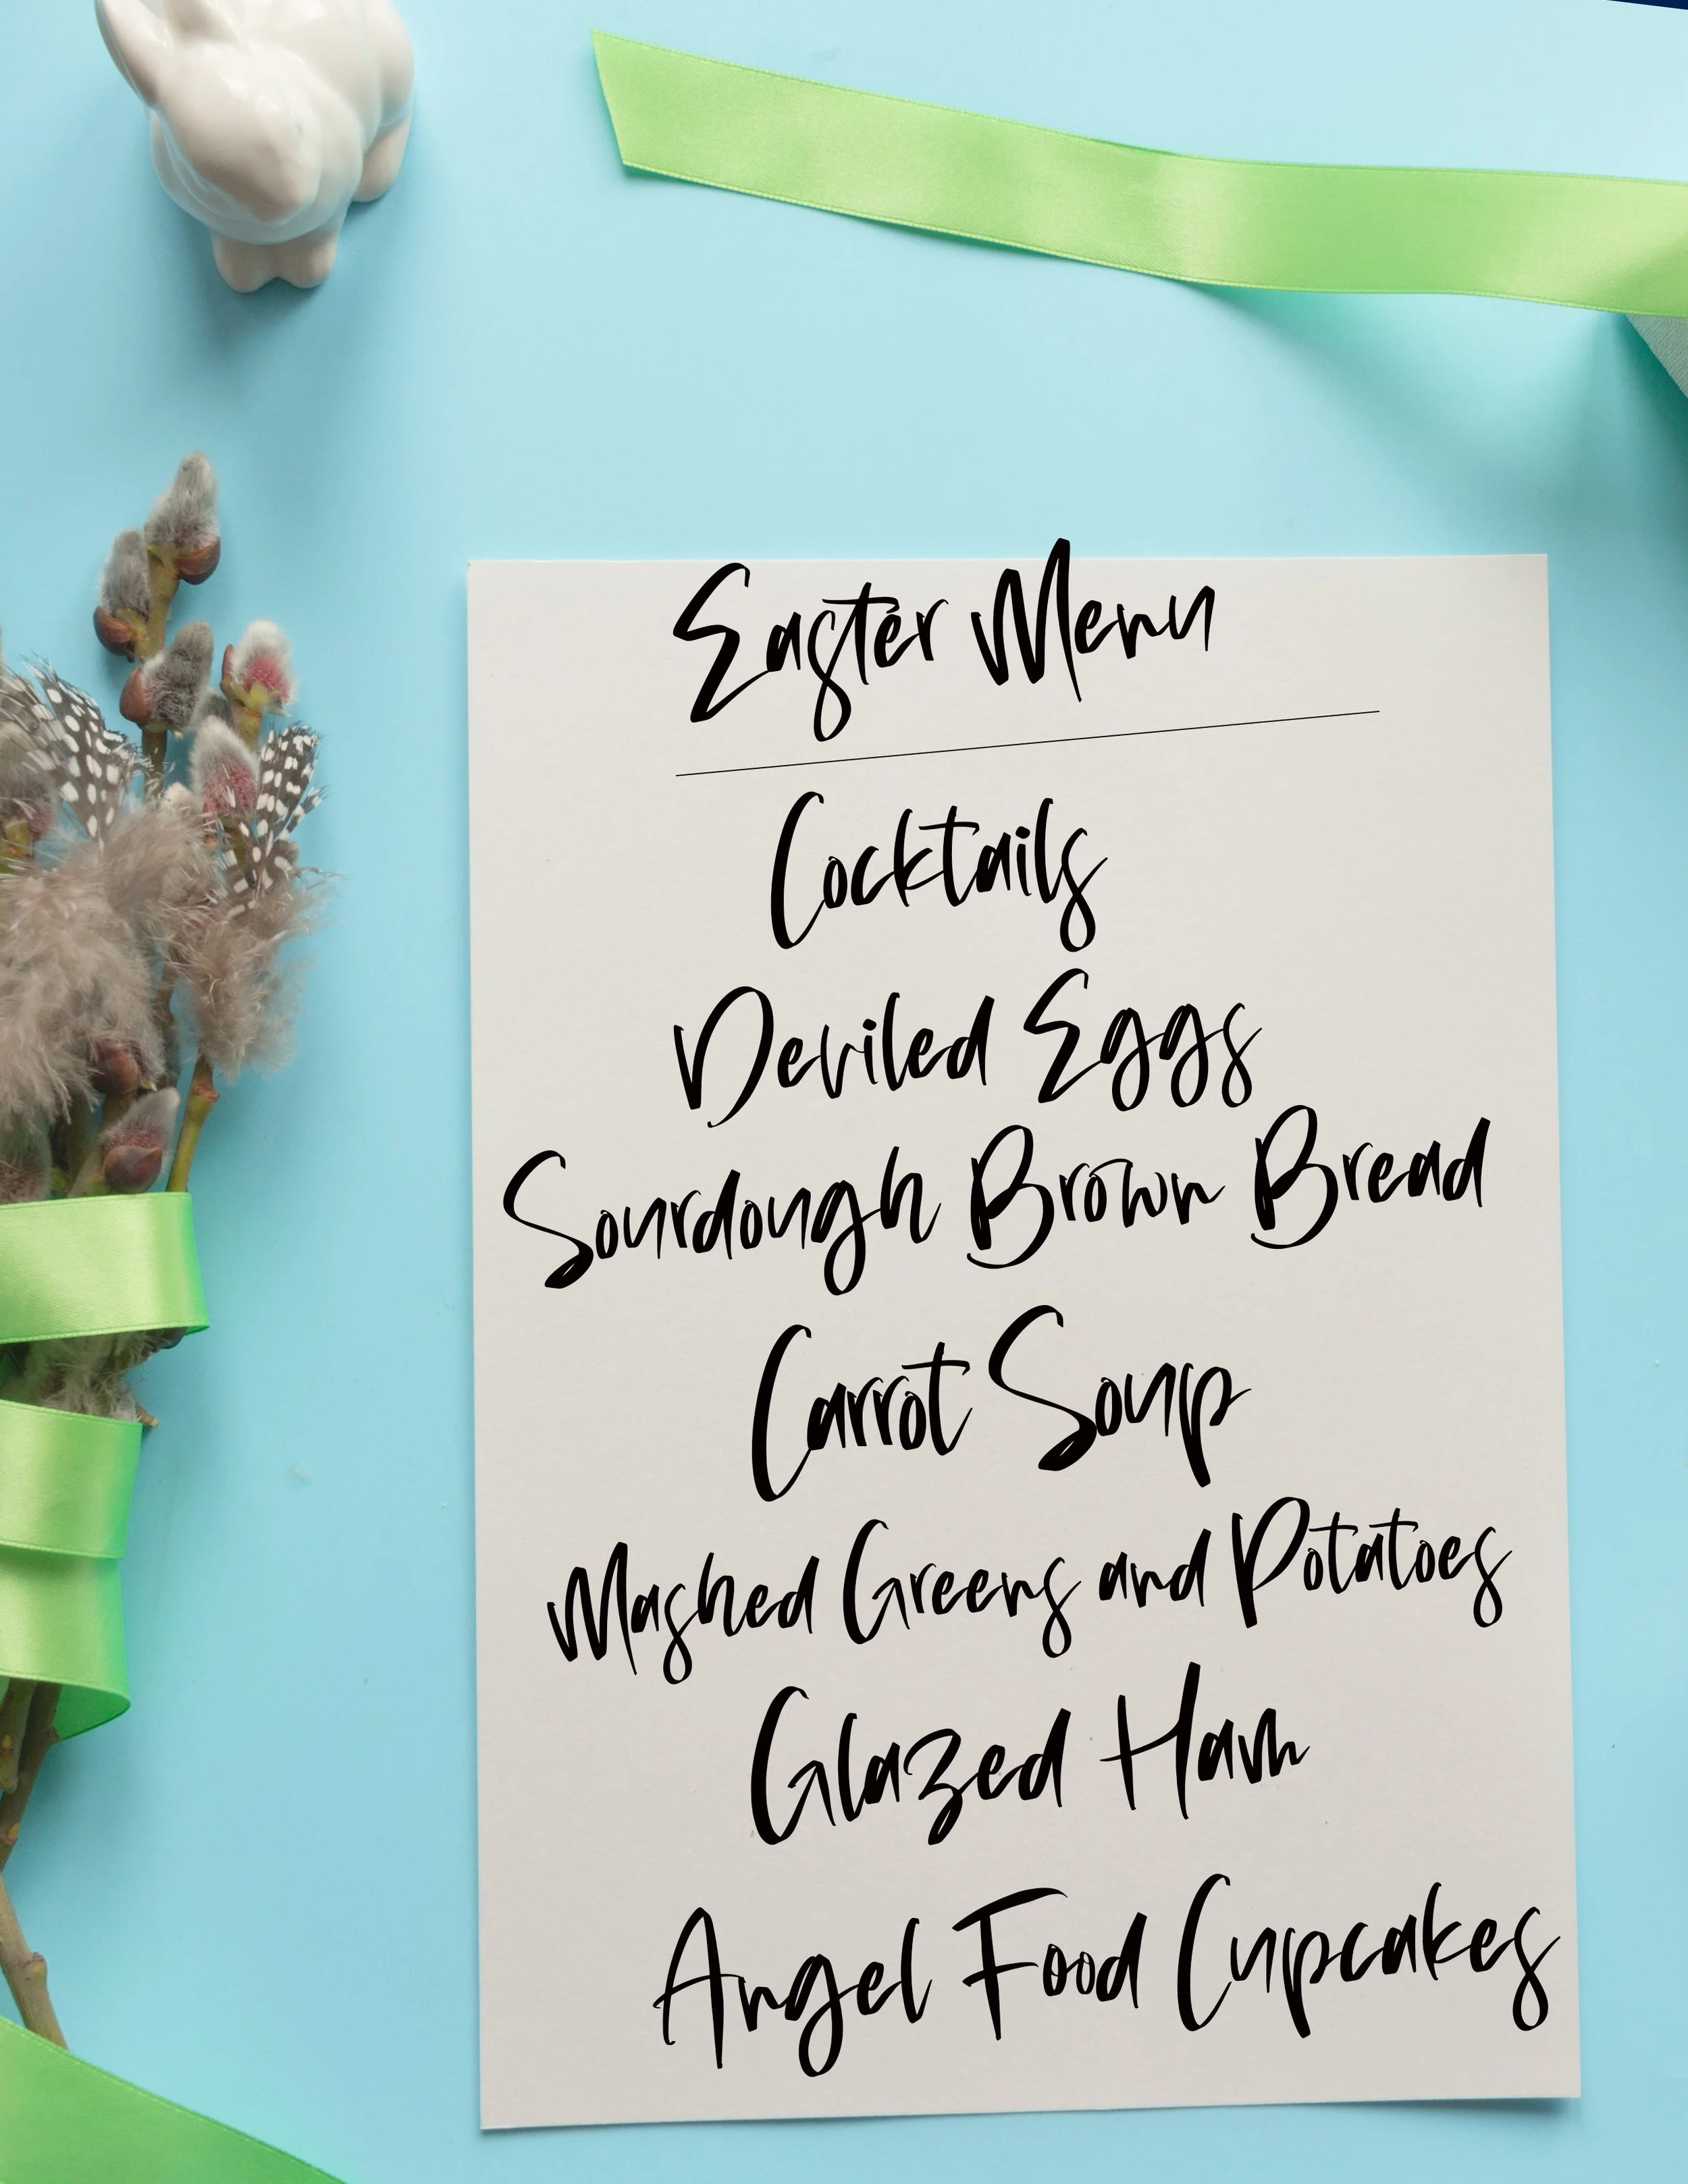 Easter Menu
Cocktails
Deviled Eggs
Sourdough Brown Bread
Carrot Soup
Mashed Greens and Potatoes
Glazed Ham
Angel Food Cupcakes